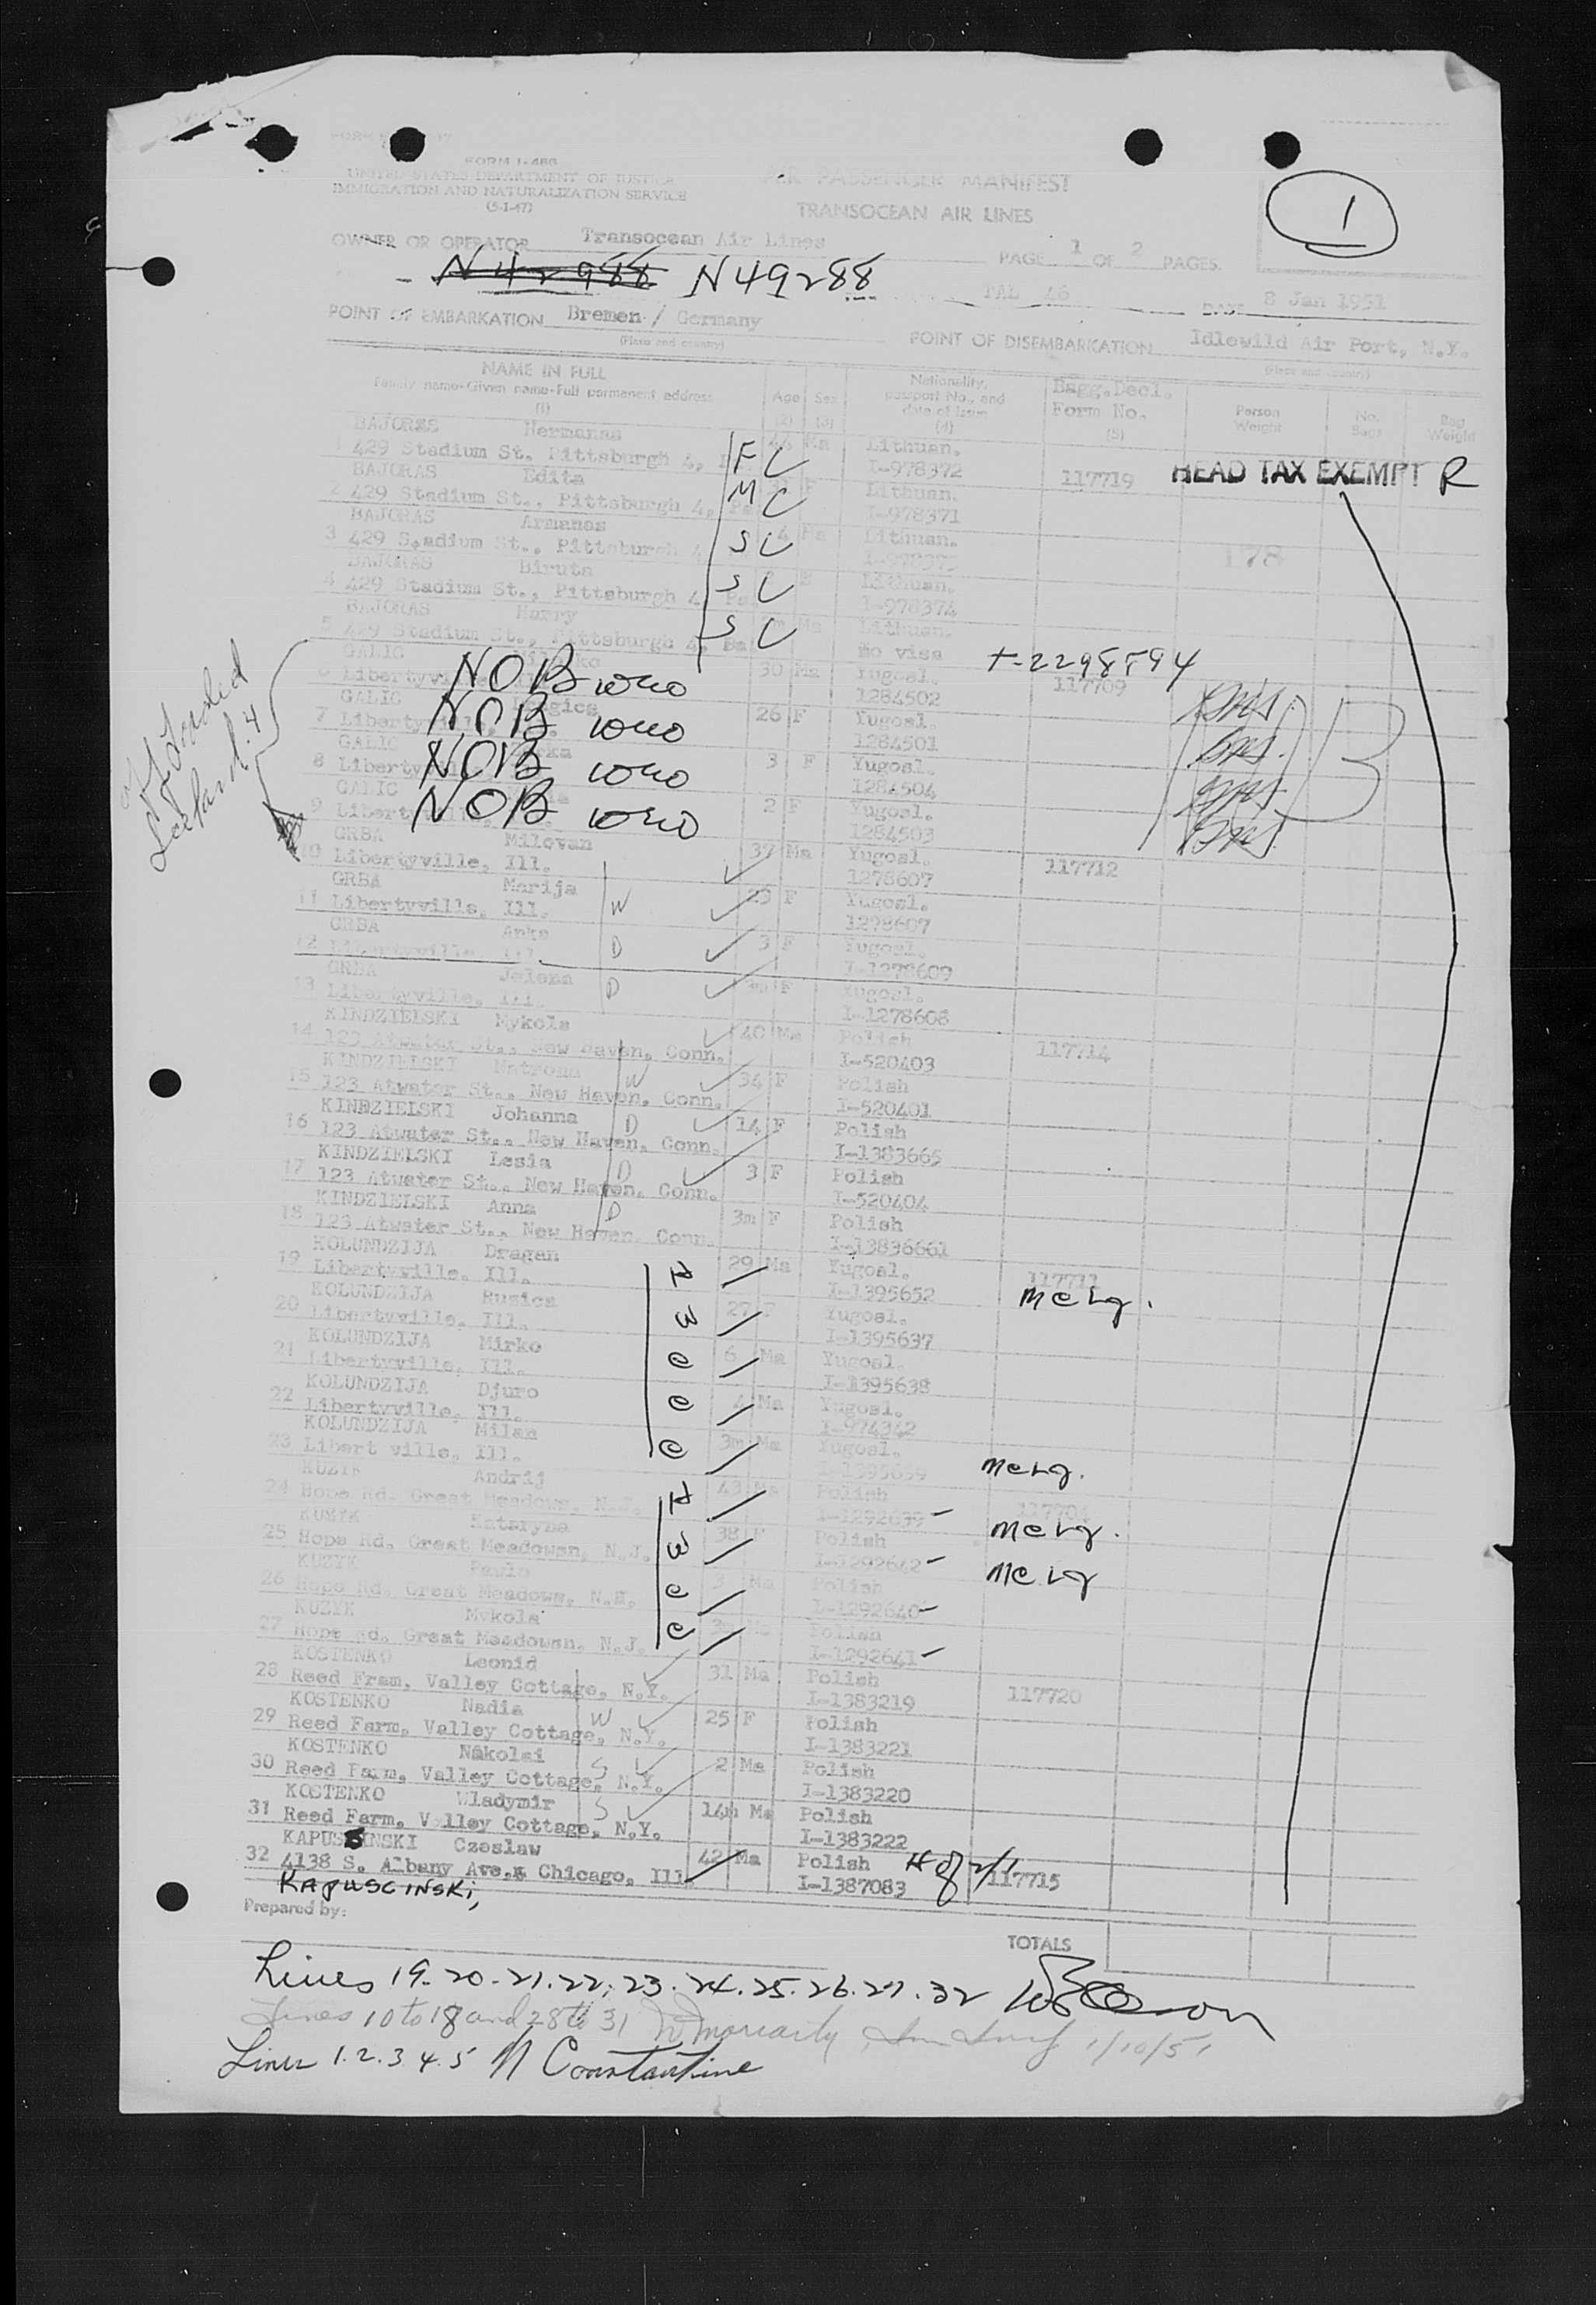 FORM I-466
UNITED STATES DEPARTMENT OF JUSTICE
IMMIGRATION AND NATURALIZATION SERVICE
(5-1-47)
AIR PASSENGER MANIFEST
TRANSOCEAN AIR LINES
1
OWNER OR OPERATOR Transocean Air Lines
PAGE 1 OF 2 PAGES.
N42988 N49288
TAL 46 DATE 8 Jan 1951
POINT OF EMBARKATION Bremen / Germany
(Place and country)
POINT OF DISEMBARKATION Idlewild Air Port, N.Y.
(Place and country)
NAME IN FULL
Family name-Given name-Full permanent address
(1)
Age
(2)
Sex
(3)
Nationality,
passport No., and
date of issue
(4)
Bagg.Decl.
Form No.
(5)
Person
Weight
No.
Bags
Bag
Weight
BAJORAS Hermanas Ma Lithuan.
1 429 Stadium St. Pittsburgh 4, F C I-978372 117719 HEAD TAX EXEMPT R
BAJORAS Edita F Lithuan.
2 429 Stadium St., Pittsburgh 4, Pa M C I-978371
BAJORAS Armanas Ma Lithuan.
3 429 Stadium St., Pittsburgh 4 S C 178
BAJORAS Biruta Lithuan.
4 429 Stadium St., Pittsburgh 4 Pa S C I-978374
BAJORAS Harry Ma Lithuan.
5 429 Stadium St., Pittsburgh 4, Pa S C no visa T-2298594
GALIC NOB 30 Ma Yugosl. 117709
6 Libertyville 1284502
GALIC NOB 26 F Yugosl.
7 Libertyville 1284501
GALIC NOB 3 F Yugosl.
8 Libertyville 1284504
GALIC NOB 2 F Yugosl.
9 Libertyville 1284503
Iceland. 4
GRBA Milovan 37 Ma Yugosl. 117712
10 Libertyville, Ill. 1278607
GRBA Marija 29 F Yugosl.
11 Libertyville, Ill. W 1278607
GRBA Anka 3 F Yugosl.
12 Libertyville Ill. D I-1278609
GRBA Jelena 3m F Yugosl.
13 Libertyville, Ill. D I-1278608
KINDZIELSKI Mykola 40 Ma Polish 117714
14 123 Atwater St., New Haven, Conn. I-520403
KINDZIELSKI Matrona 34 F Polish
15 123 Atwater St., New Haven, Conn. W I-520401
KINDZIELSKI Johanna 14 F Polish
16 123 Atwater St., New Haven, Conn. D I-1383665
KINDZIELSKI Lesia 3 F Polish
17 123 Atwater St., New Haven, Conn. D I-520404
KINDZIELSKI Anna 3m F Polish
18 123 Atwater St., New Haven, Conn. D I-13836661
KOLUNDZIJA Dragan 29 Ma Yugosl. 117711
19 Libertyville, Ill. H I-1395652
KOLUNDZIJA Rusica 27 F Yugosl.
20 Libertyville, Ill. W I-1395637
KOLUNDZIJA Mirko 6 Ma Yugosl.
21 Libertyville, Ill. C I-1395638
KOLUNDZIJA Djuro 4 Ma Yugosl.
22 Libertyville, Ill. C I-974342
KOLUNDZIJA Milan 3m Ma Yugosl.
23 Libert ville, Ill. C
KUZYK Andrij 43 Ma Polish
24 Hope Rd. Great Meadows, N.J. H I-1292639
KUZYK Kataryna 38 F Polish
25 Hope Rd. Great Meadowsn, N.J. W I-1292642
KUZYK Pawlo 3 Ma Polish
26 Hope Rd. Great Meadows, N.J. C I-1292640
KUZYK Mykola Polish
27 Hope Rd. Great Meadowsn, N.J. C I-1292641
KOSTENKO Leonid 31 Ma Polish 117720
28 Reed Fram, Valley Cottage, N.Y. I-1383219
KOSTENKO Nadia 25 F Polish
29 Reed Farm, Valley Cottage, N.Y. W I-1383221
KOSTENKO Nikolai 2 Ma Polish
30 Reed Farm, Valley Cottage, N.Y. S I-1383220
KOSTENKO Wladymir 14m Ma Polish
31 Reed Farm, Valley Cottage, N.Y. S I-1383222
KAPUSCINSKI Czeslaw 42 Ma Polish
32 4138 S. Albany Ave., Chicago, Ill. I-1387083 117715
KAPUSCINSKI,
Prepared by:
TOTALS
Lines 19-20-21.22.23.24.25.26.27.32
Lines 10 to 18 and 28 to 31 Moriarty 1/10/51
Lines 1.2.3 4.5 N Constantine